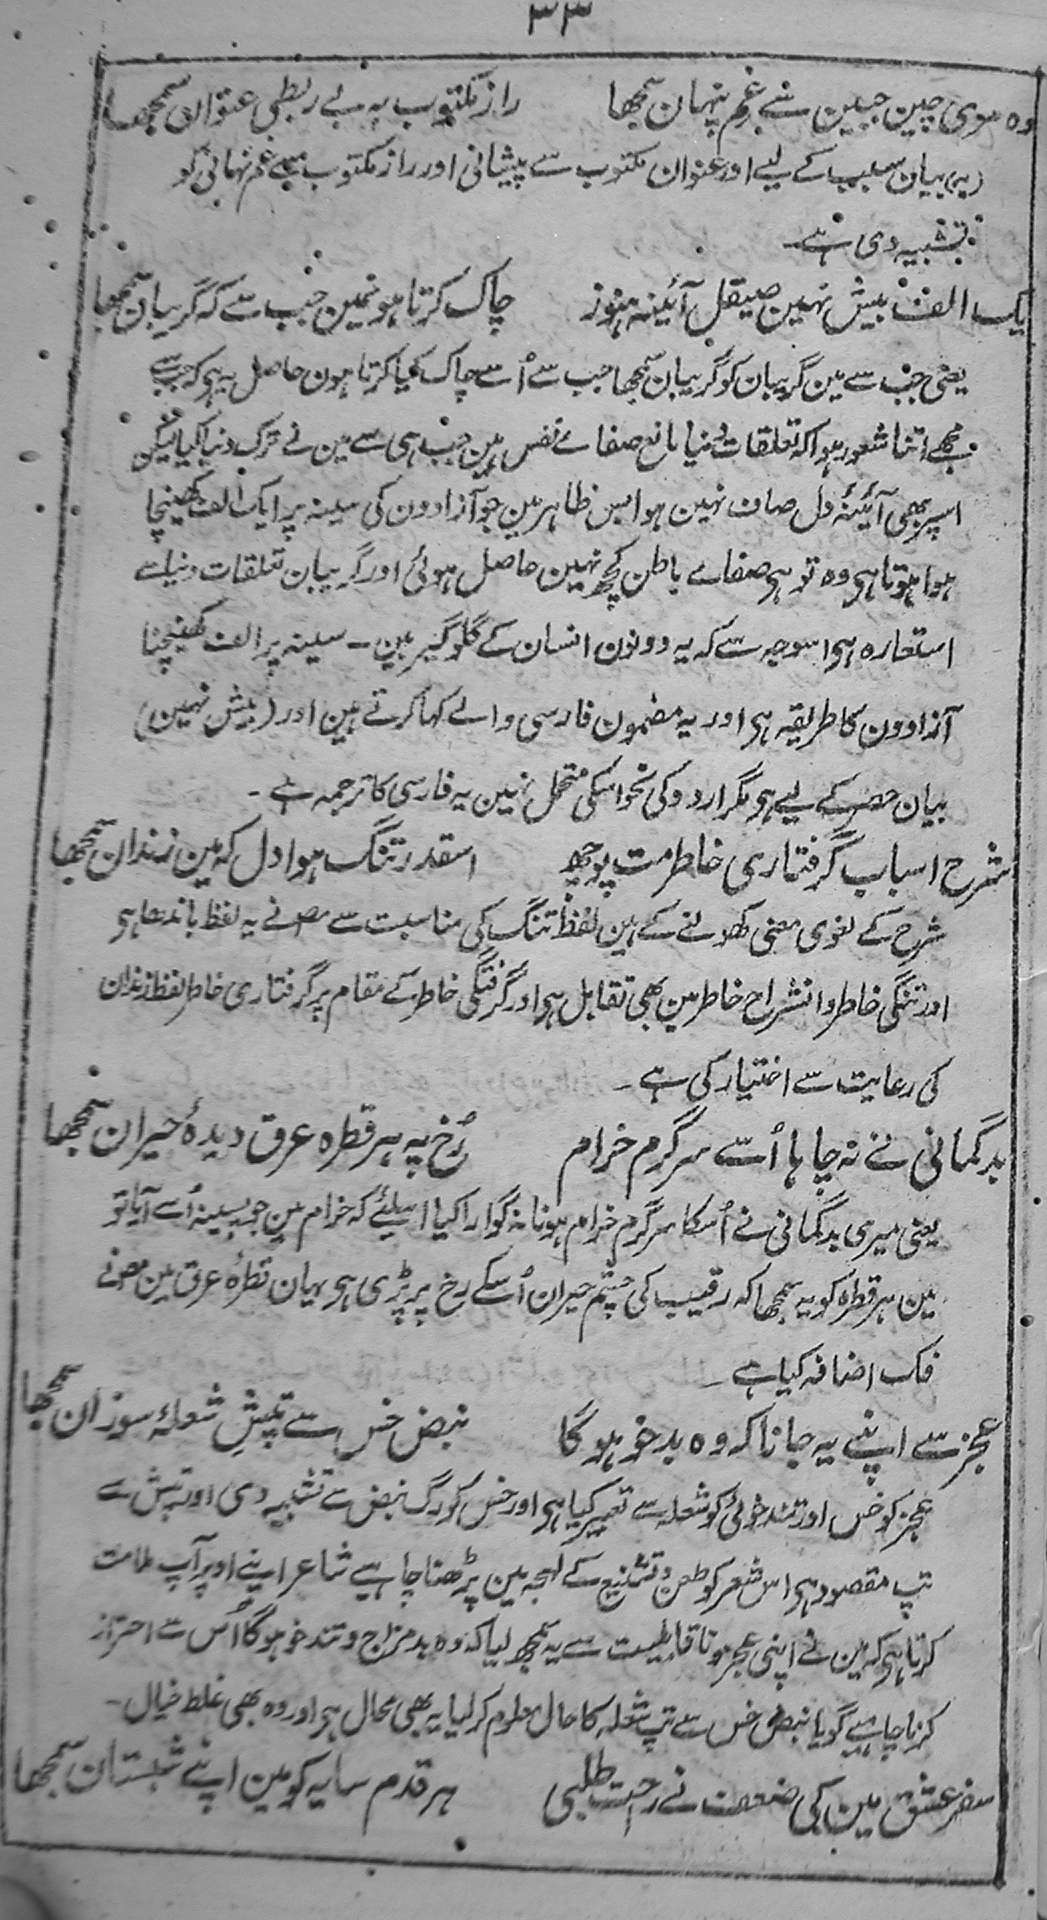 ۳۳
وہ مری چین جبین سے غم پنہان سمجھا راز مکتوب بہ بے ربطی عنوان سمجھا
(بہ) بیان سبب کے لیے اور عنوان مکتوب سے پیشانی اور راز مکتوب سے غم نہانی کو
تشبیہ دی ہے۔
یک الف بیش نہین صیقل آئینہ ہنوز چاک کرتا ہو نمین جب سے کہ گریبان سمجھا
یعنی جب سے مین گریبان کو گریبان سمجھا جب سے اُسے چاک کیا کرتا ہون حاصل یہ ہی کہ جب سے
مجھے اتنا شعور ہوا کہ تعلقات دنیا مانع صفاے نفس ہین جب ہی سے مین نے ترک دنیا کیا لیکن
اسپر بھی آئینۂ دل صاف نہین ہوا بس ظاہر مین جو آزادون کی سینہ پر ایک الف کھینچا
ہوا ہوتا ہی وہ تو ہی صفاے باطن کچھ نہین حاصل ہوئی اور گریبان تعلقات دنیا سے
استعارہ ہی اسوجہ سے کہ یہ دونون انسان کے گلوگیر ہین ۔ سینہ پر الف کھینچنا
آزادون کا طریقہ ہی اور یہ مضمون فارسی والے کہا کرتے ہین اور (بیش نہین)
بیان حصر کے لیے ہی مگر اردو کی نحو اسکی متحمل نہین یہ فارسی کا ترجمہ ہے ۔
شرح اسباب گرفتاری خاطر مت پوچھ اسقدر تنگ ہوا دل کہ مین زندان سمجھا
شرح کے لغوی معنی کھولنے کے ہین لفظ تنگ کی مناسبت سے مصنف نے یہ لفظ باندھا ہی
اور تنگی خاطر و انشراح خاطر مین بھی تقابل ہی اور گرفتگی خاطر کے مقام پر گرفتاری خاطر لفظ زندان
کی رعایت سے اختیار کی ہے ۔
بدگمانی نے نہ چاہا اُسے سرگرم خرام رُخ پہ ہر قطرہ عرق دیدۂ حیران سمجھا
یعنی میری بدگمانی نے اُسکا سرگرم خرام ہونا نہ گوارا کیا اسیلئے کہ خرام مین جو پسینہ اُسے آیا تو
مین ہر قطرہ کو یہ سمجھا کہ رقیب کی چشم حیران اُسکے رخ پر پڑی ہی یہان قطرۂ عرق مین مصنف نے
فک اضافہ کیا ہے ۔
عجز سے اپنے یہ جانا کہ وہ بدخو ہوگا نبض خس سے تپشِ شعلۂ سوزان سمجھا
عجز کو خس اور تندخوئی کو شعلہ سے تعبیر کیا ہی اور خس کو رگ نبض سے تشبیہ دی اور تپش سے
تپ مقصود ہی اس شعر کو طعن و تشنیع کے لہجہ مین پڑھنا چاہیے شاعر اپنے اوپر آپ ملامت
کرتا ہی کہ مین نے اپنی عجز و ناقابلیت سے یہ سمجھ لیا کہ وہ بدمزاج و تندخو ہوگا اُس سے احتراز
کرنا چاہیے گویا نبض خس سے تپ شعلہ کا حال معلوم کر لیا یہ بھی محال ہی اور وہ بھی غلط خیال ۔
سفر عشق مین کی ضعف نے راحت طلبی ہر قدم سایہ کو مین اپنے شبستان سمجھا